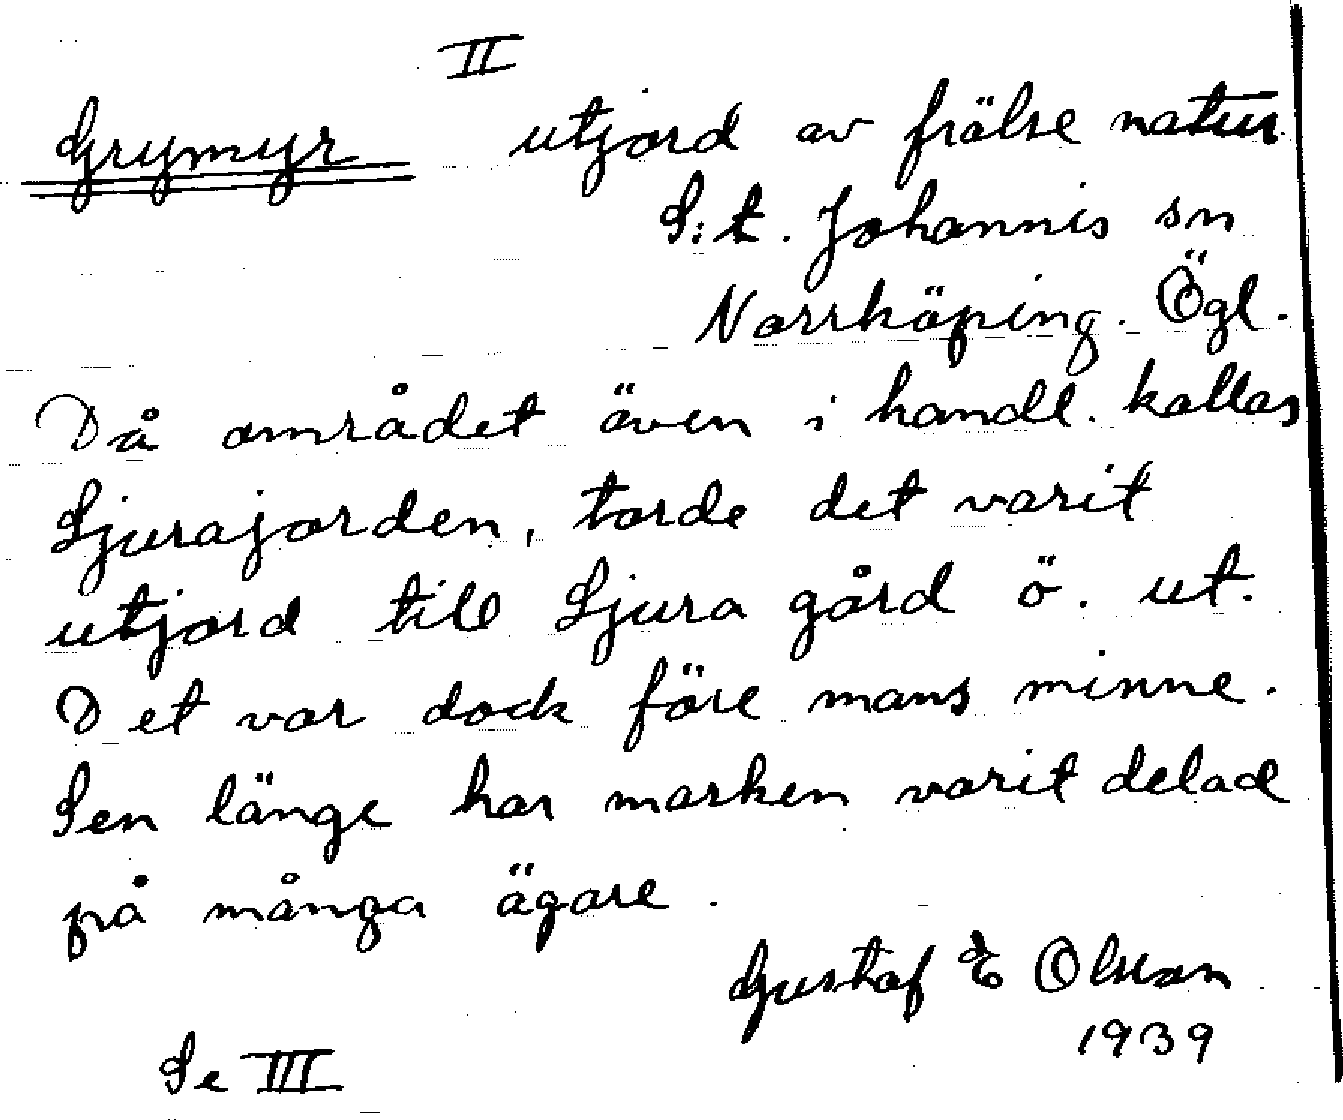 II
Grymyr utjord av frälse natur
S:t. Johannis sn
Norrköping. Ögl.
Då området även i handl. kallas
Ljurajorden, torde det varit
utjord till Ljura gård ö. ut.
Det var dock före mans minne.
Sen länge har marken varit delad
på många ägare.
Gustaf E Olsson
1939
Se III